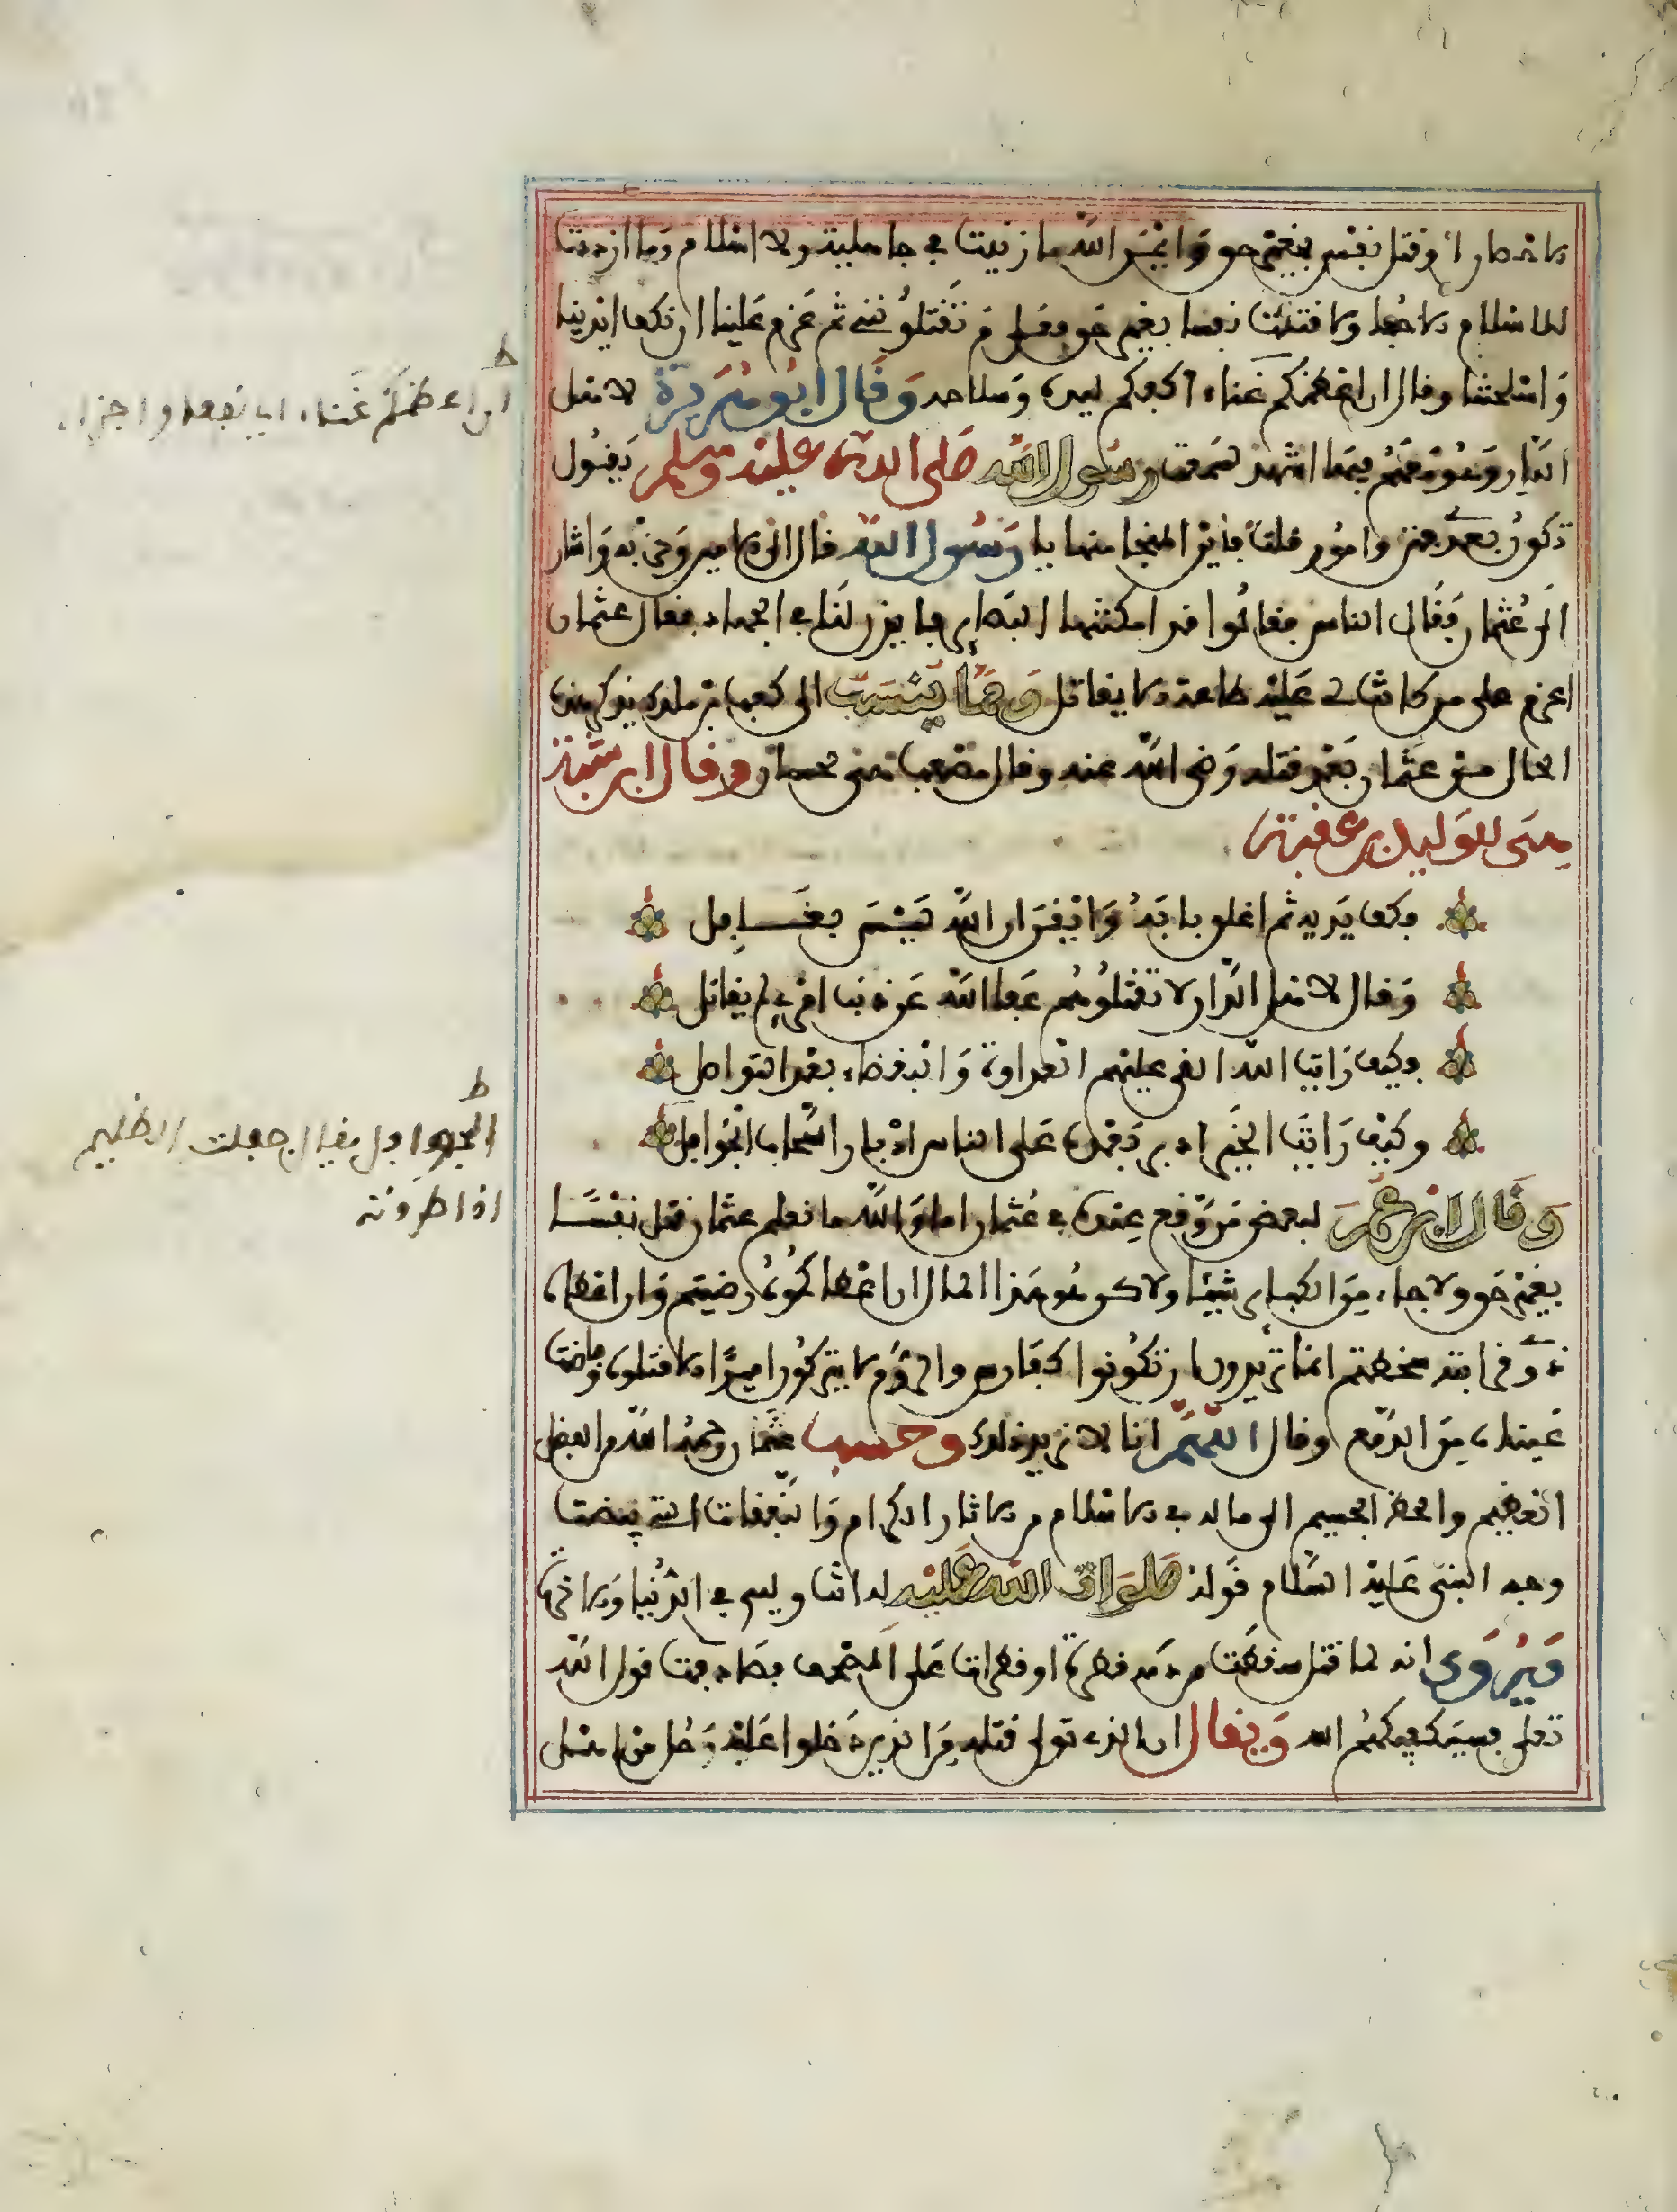 الاحصان أو قتل نفس بغير حق وايم الله ما زنيت في جاهلية ولا اسلام وما ازددت
للاسلام الا حبا ولا قتلت نفسا بغير حق فعلى م تقتلونني ثم عزم علينا ان نكف ايدينا
واسلحتنا وقال ان اعظمكم غناء اكفكم ليده وسلاحه وقال ابو هريرة لاهل
الدار وهو معهم فيها اشهد لسمعت رسول الله صلى الله عليه وسلم يقول
تكون بعدي فتن وامور قلت فاين المنجا منها يا رسول الله قال الى الامير وحزبه واشار
الى عثمان فقال الناس فقالوا قد امكنتنا البصاير فايذن لنا في الجهاد فقال عثمان
اعزم على من كانت لي عليه طاعة الا يقاتل ومما ينسب الى كعب بن ملك يذكر هذه
الحال من عثمان بعد قتله رضي الله عنه وقال مصعب هي لحسان وقال ابن شبة
هي للوليد بن عقبة
فكف يديه ثم اغلق بابه وايقن ان الله ليس بغافل
وقال لاهل الدار لا تقتلوهم عفا الله عن ذنب امرئ لم يقاتل
فكيف رايت الله القى عليهم العداوة والبغضاء بعد التواصل
وكيف رايت الخير ادبر بعده على الناس ادبار السحاب الجوافل
وقال ابن عمر لبعض من وقع عنده في عثمان اما والله ما نعلم عثمان قتل نفسا
بغير حق ولا جاء من الكباير شيئا ولاكن هو هذا المال ان اعطاكموه رضيتم وان اعطاه
ذوي قرابته سخطتم انما تريدون ان تكونوا كفارس والروم لا يتركون اميرا الا قتلوه وفاضت
عيناه من الدمع وقال اللهم انا لا نريد ذلك وحسب عثمان رحمه الله من الفضل
العظيم والحظ الجسيم الى ما له في الاسلام من الاثار الكرام والنفقات التي بيضت
وجه النبي عليه السلام قوله صلوات الله عليه له انت وليي في الدنيا والاخرة
ويروى انه لما قتل سقطت من دمه قطرة او قطرات على المصحف فصادفت قول الله
تعلى فسيكفيكهم الله ويقال ان الذي تولى قتله من الذين دخلوا عليه رجل من اهل
ط
ان اعظمكم غناء اي نفعا واجزاء
ط
الجوافل يقال جفلت الظليم
اذا طردته